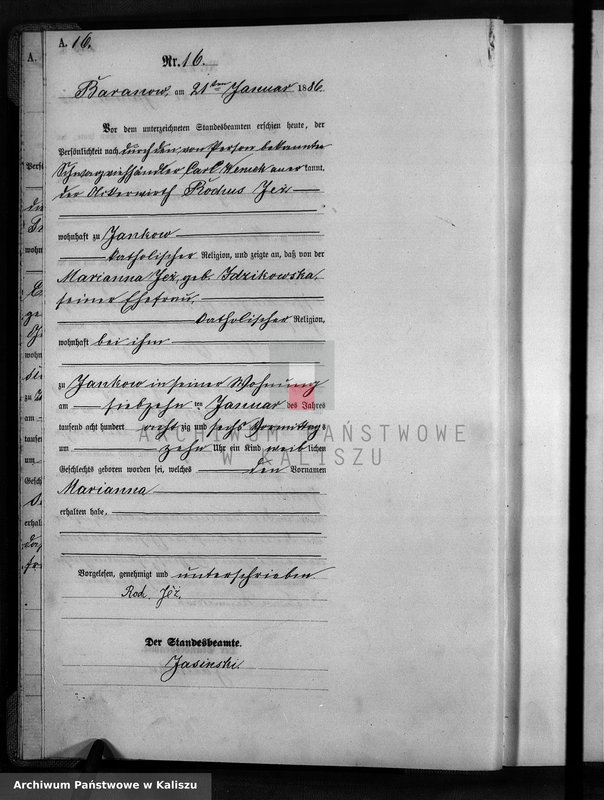 A. 16.
Nr. 16.
Baranow, am 21ten Januar 1886.
Vor dem unterzeichneten Standesbeamten erschien heute, der
Persönlichkeit nach durch den, von Person bekannten
Schwarzviehhändler Carl aner kannt,
der Ackerwirth Rochus Jeż
wohnhaft zu Jankow
katholischer Religion, und zeigte an, daß von der
Marianna Jeż, geb. Idzikowska,
seiner Ehefrau,
katholischer Religion,
wohnhaft bei ihm
zu Jankow in seiner Wohnung
am siebzehn ten Januar des Jahres
tausend acht hundert acht zig und sechs Vormittags
um zehn Uhr ein Kind weib lichen
Geschlechts geboren worden sei, welches den Vornamen
Marianna
erhalten habe.
Vorgelesen, genehmigt und unterschrieben
Roch. Jeż.
Der Standesbeamte.
Jasinski.
ARCHIWUM PAŃSTWOWE
W KALISZU
Archiwum Państwowe w Kaliszu